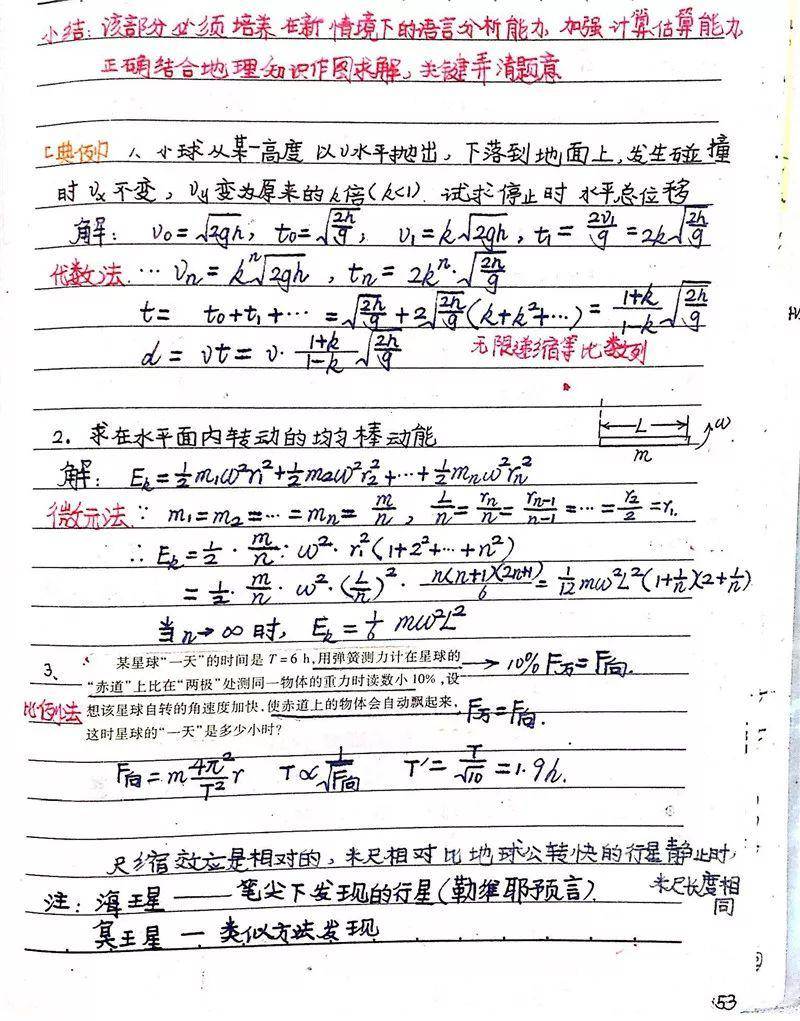 小结: 该部分必须培养在新情境下的语言分析能力 加强计算估算能力
正确结合地理知识作图求解, 关键弄清题意
[典例] 1、小球从某一高度以v水平抛出, 下落到地面上, 发生碰撞
时vx不变, vy变为原来的k倍(k<1). 试求停止时水平总位移
解: v₀=√(2gh), t₀=√(2h/g), v₁=k√(2gh), t₁=2v₁/g=2k√(2h/g)
代数法 … vₙ=kⁿ√(2gh), tₙ=2kⁿ·√(2h/g)
t= t₀+t₁+…=√(2h/g)+2√(2h/g)(k+k²+…)=(1+k)/(1-k)√(2h/g)
d=vt=v·(1+k)/(1-k)√(2h/g) 无限递缩等比数列
2. 求在水平面内转动的均匀棒动能
L ω
m
解: Eₖ=½m₁ω²r₁²+½m₂ω²r₂²+…+½mₙω²rₙ²
微元法 ∵ m₁=m₂=…=mₙ=m/n, L/n=rₙ/n=rₙ₋₁/(n-1)=…=r₂/2=r₁.
∴ Eₖ=½·m/n·ω²·r₁²(1+2²+…+n²)
=½·m/n·ω²·(L/n)²·n(n+1)(2n+1)/6=1/12 mω²L²(1+1/n)(2+1/n)
当n→∞时, Eₖ=1/6 mω²L²
3、 某星球“一天”的时间是 T=6 h,用弹簧测力计在星球的 → 10% F万=F向.
“赤道”上比在“两极”处测同一物体的重力时读数小 10%,设
比例法 想该星球自转的角速度加快,使赤道上的物体会自动飘起来, F万=F向.
这时星球的“一天”是多少小时?
F向=m 4π²/T² r T∝1/√F向 T′=T/√10=1.9h.
尺缩效应是相对的, 米尺相对比地球公转快的行星静止时,
米尺长度相同
注: 海王星——笔尖下发现的行星(勒维耶预言).
冥王星—类似方法发现
53